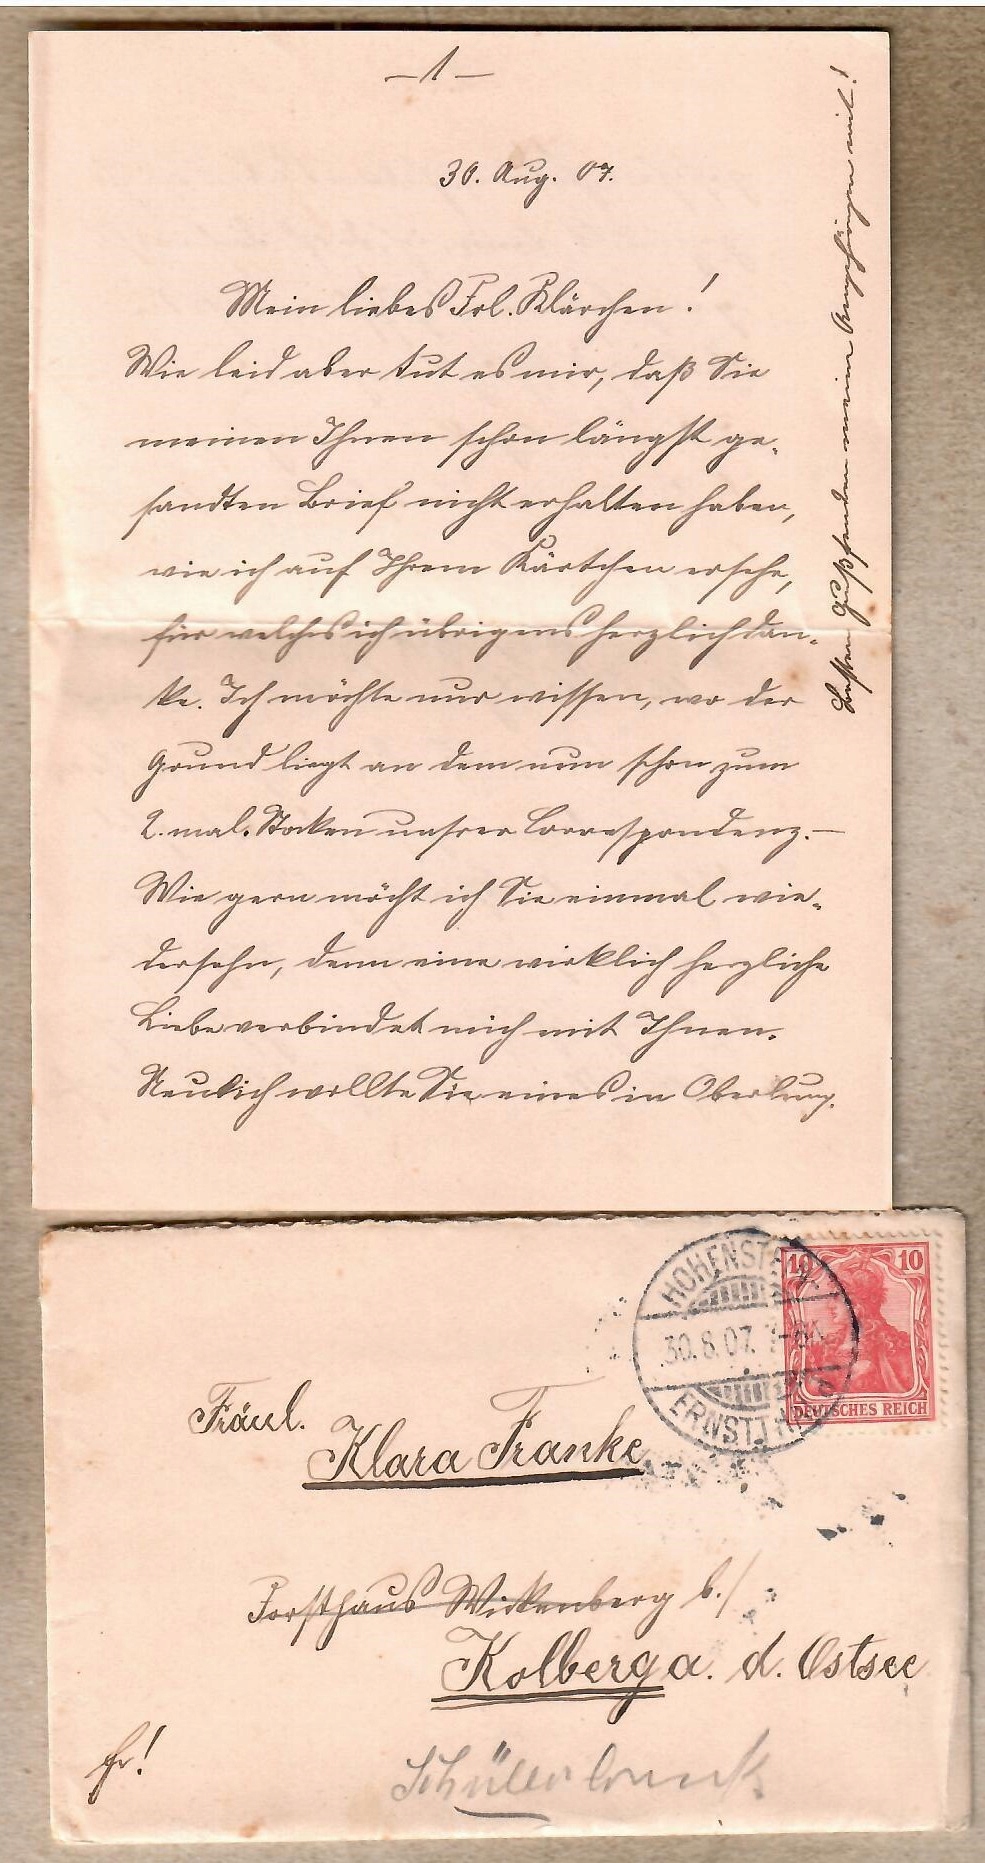 – 1 –
30. Aug. 07.
Mein liebes Frl. Klärchen!
Wie leid aber tut es mir, daß Sie
meinen Ihnen schon längst ge-
sandten Brief nicht erhalten haben,
wie ich auf Ihrem Kärtchen ersehe,
für welches ich übrigens herzlich dan-
ke. Ich möchte nur wissen, wo der
Grund liegt an dem nun schon zum
2. mal. Stocken unsrer Correspondenz. –
Wie gern möcht ich Sie einmal wie-
dersehn, denn eine wirklich herzliche
Liebe verbindet mich mit Ihnen.
Neulich wollte Sie eines in Oberlung-
Besten Gruß senden meine Angehörigen mit!
HOHENSTEIN-
30.8.07. 7-8
ERNSTTHAL
10 10
DEUTSCHES REICH
Fräul.
Klara Franke
Forsthaus Wickenberg b./
Kolberg a. d. Ostsee
fr!